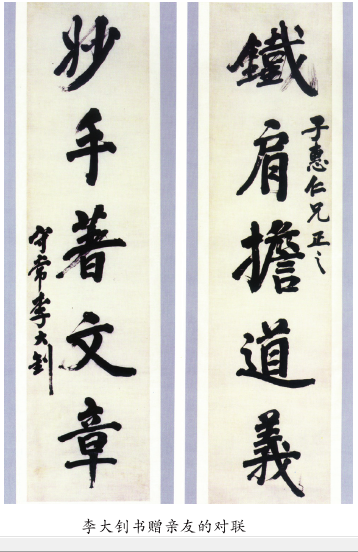 鐵肩擔道義
子惠仁兄正之
妙手著文章
守常李大釗
李大钊书赠亲友的对联